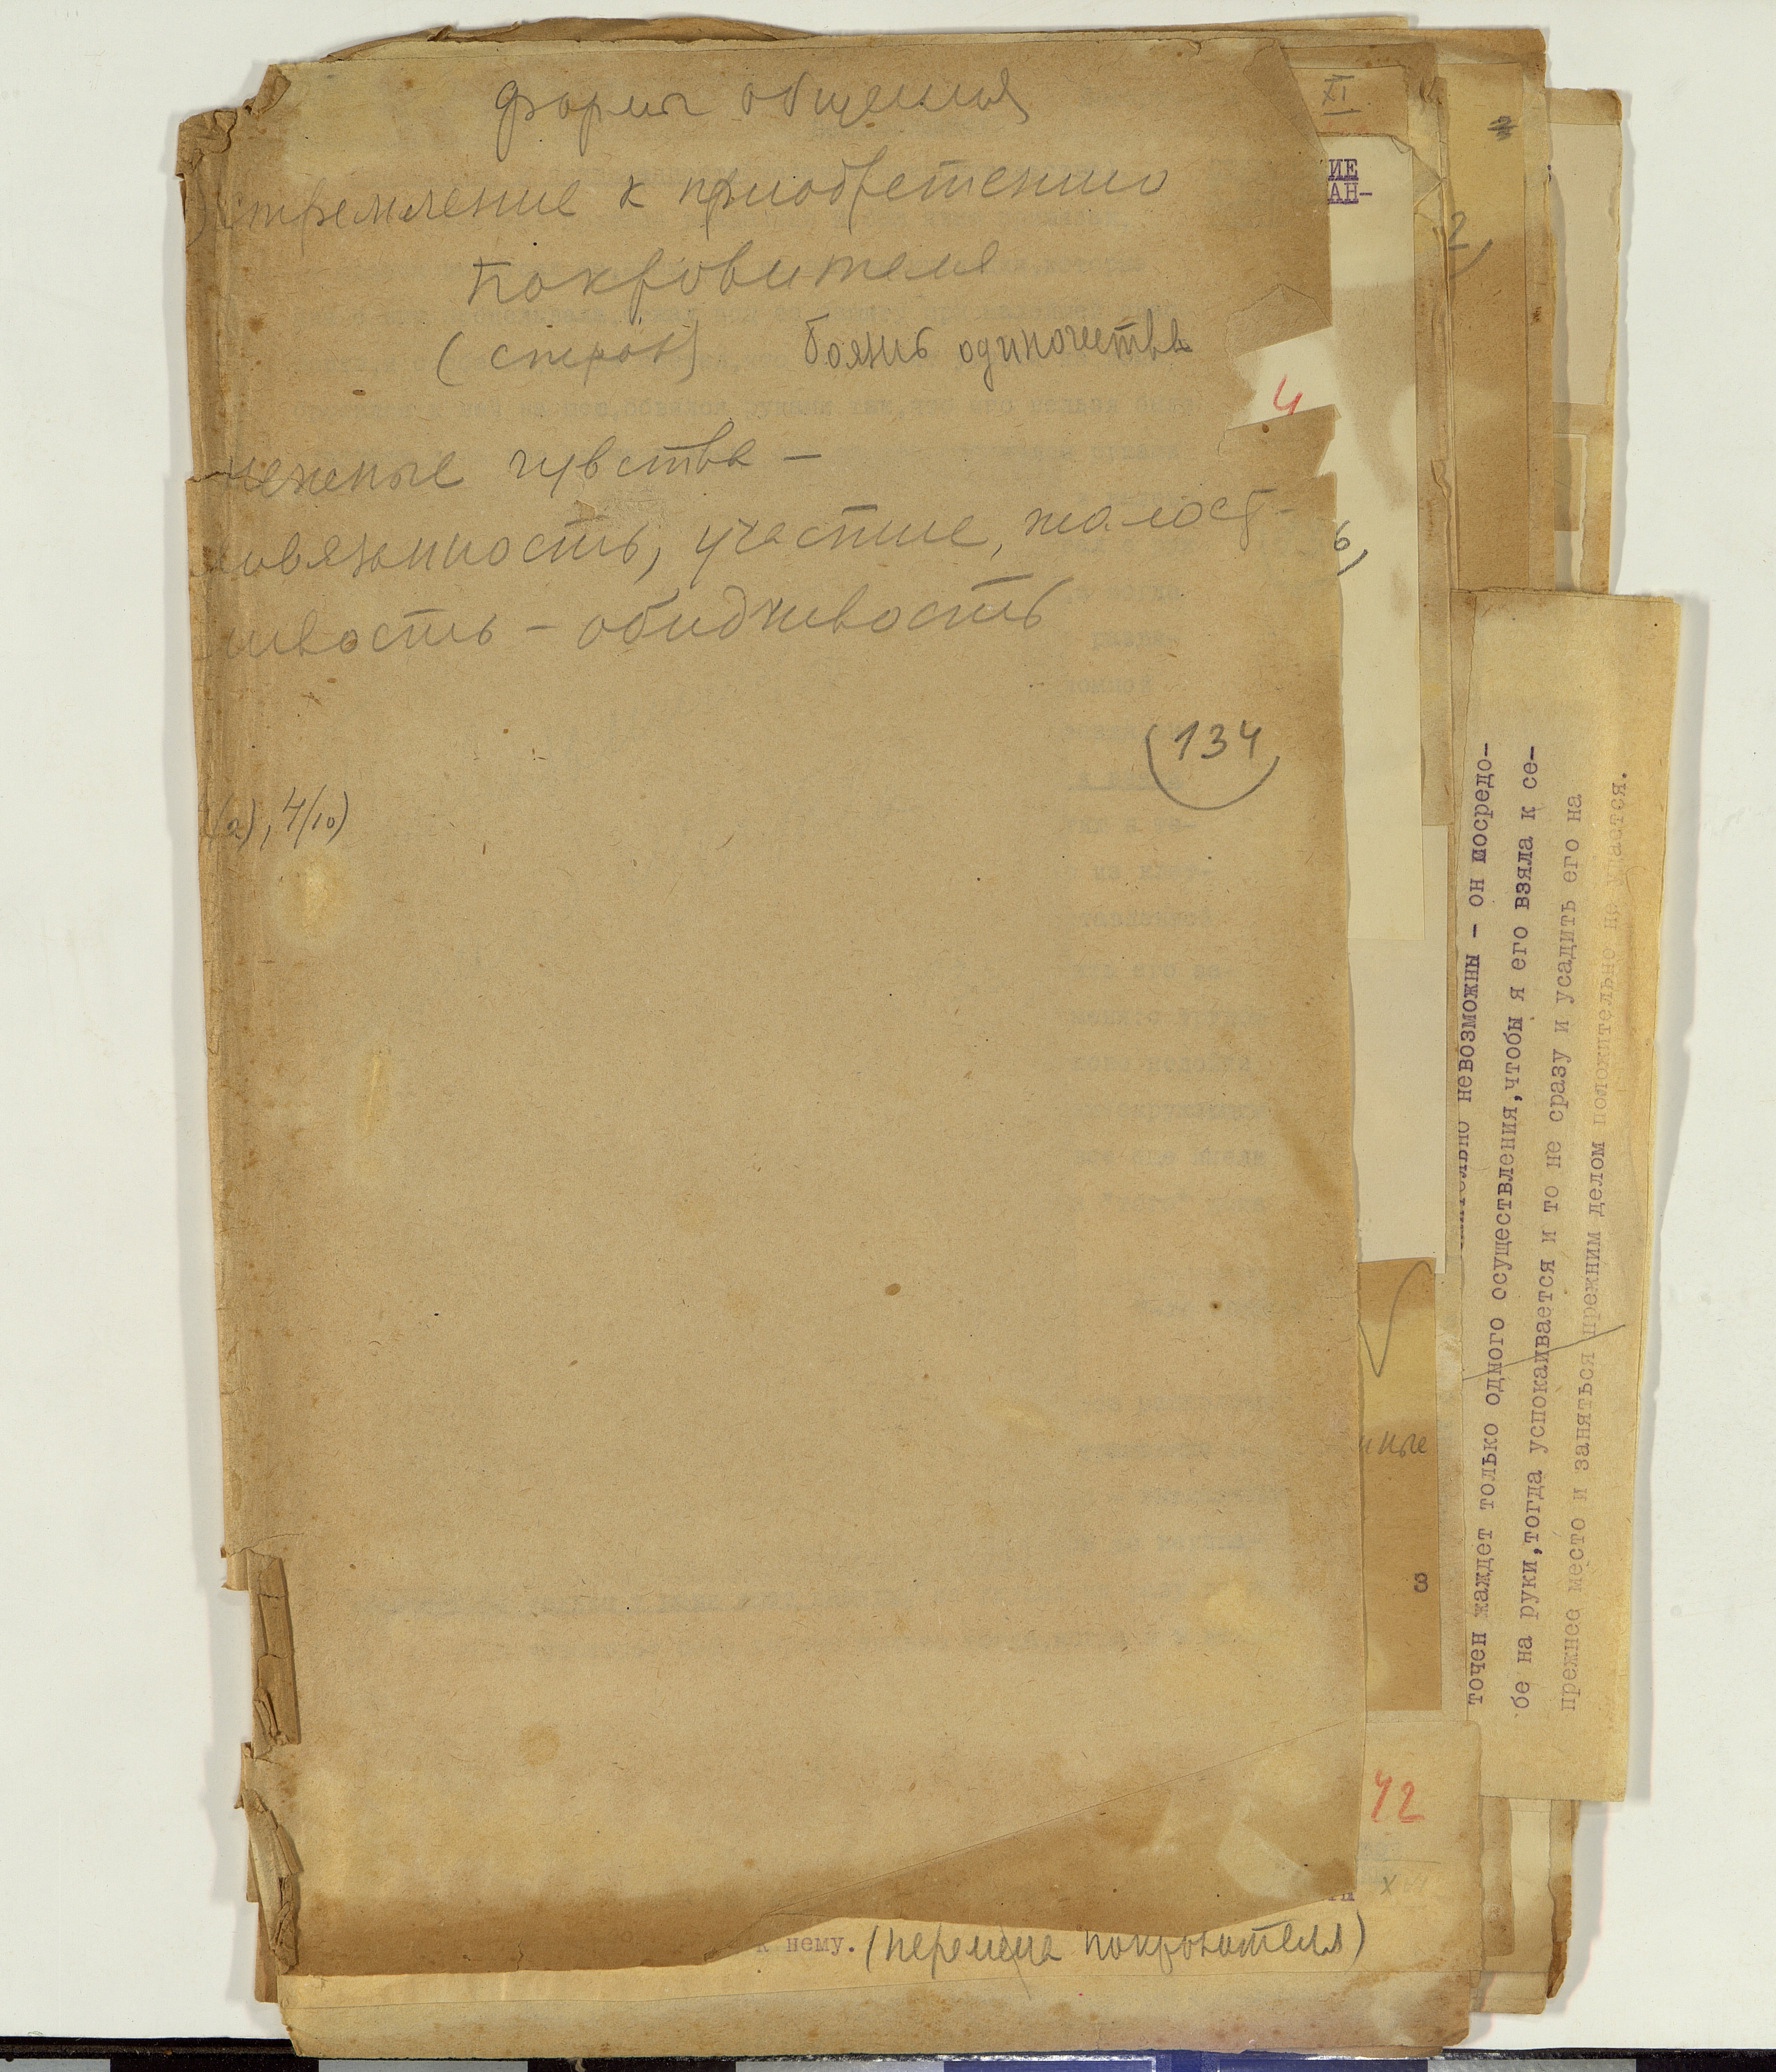 формы общения
стремление к приобретению
покровителя
(страх) боязнь одиночества
нежные чувства –
участие, жалост-
ивость – обидчивость
134
(2), 4/10)
XI
ИЕ
АН-
2,
4
6,
невозможны – он сосредо-
точен жаждет только одного осуществления, чтобы я его взяла к се-
бе на руки, тогда успокаивается и то не сразу и усадить его на
прежнее место и заняться прежним делом положительно не удастся.
нные
8
42
к нему. (перемена покровителя)